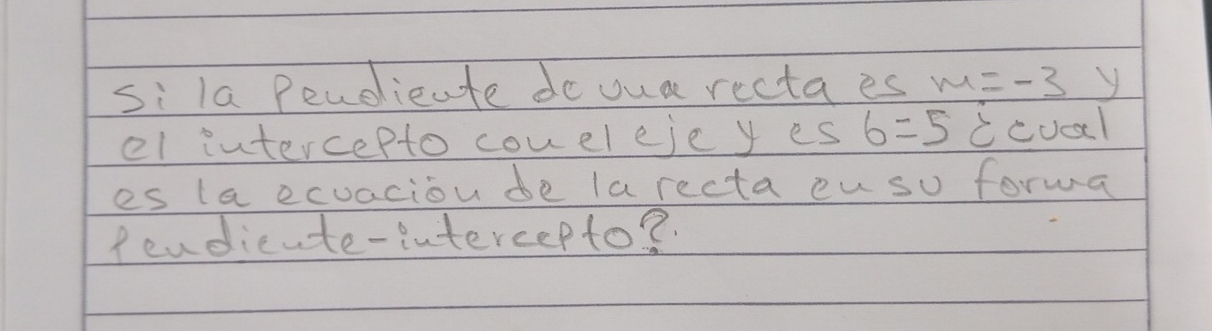 Si la Pendiente de una recta es m=-3 y
el intercepto con el eje y es b=5 ¿cual
es la ecuación de la recta en su forma
Pendiente-intercepto?.